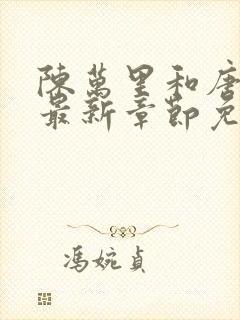 陳萬里和唐
最新章節免
馮婉貞